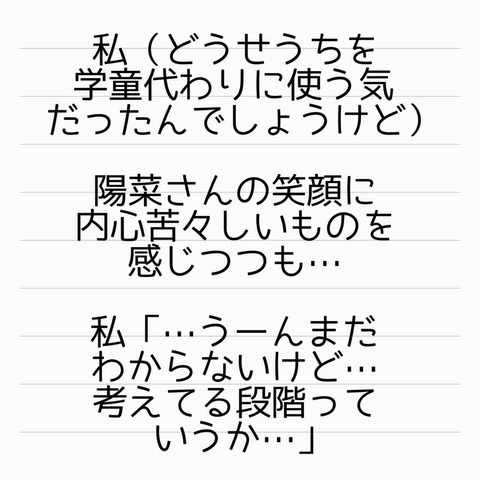 私（どうせうちを
学童代わりに使う気
だったんでしょうけど）
陽菜さんの笑顔に
内心苦々しいものを
感じつつも…
私「…うーんまだ
わからないけど…
考えてる段階って
いうか…」